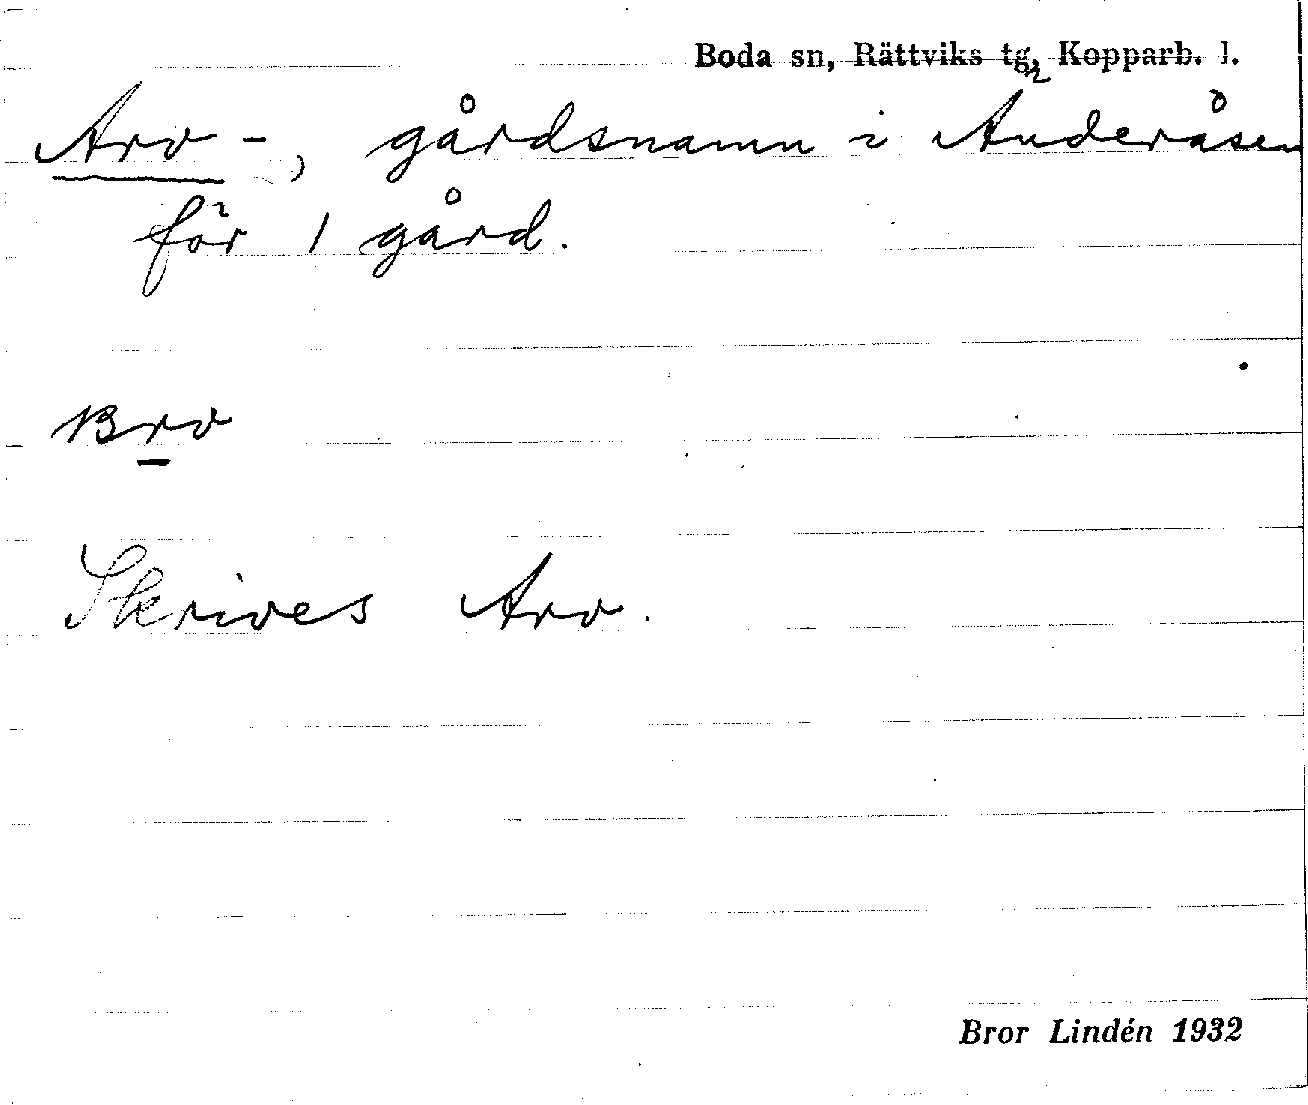 Boda sn, Rättviks tg, Kopparb. l.
Arv -, gårdsnamn i Änderåsen
för 1 gård.
Skrives Arv.
Bror Lindén 1932